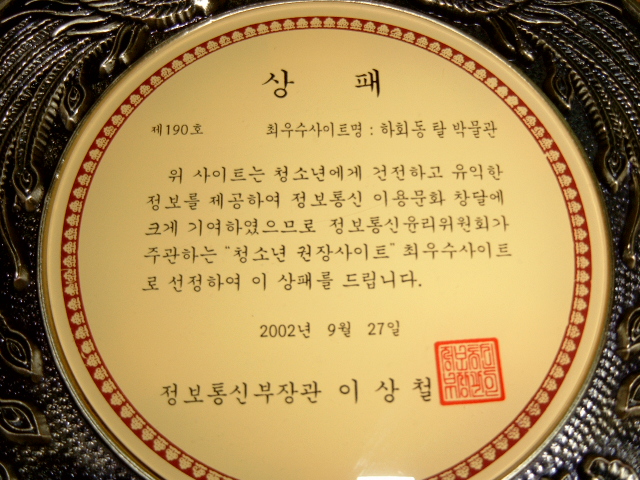 상 패
제190호 최우수사이트명 : 하회동 탈 박물관
위 사이트는 청소년에게 건전하고 유익한
정보를 제공하여 정보통신 이용문화 창달에
크게 기여하였으므로 정보통신윤리위원회가
주관하는 "청소년 권장사이트" 최우수사이트
로 선정하여 이 상패를 드립니다.
2002년 9월 27일
정보통신부장관 이 상 철